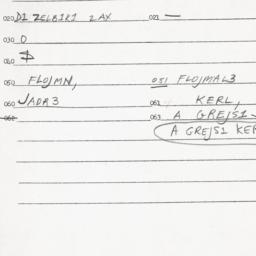 020 D1 ZELBIR1 2 AX 021 —
030 0
040 $
050 FLOJMN, 051 FLOJMAL3
060 JADR3 061 KERL,
062 063 A GREJS1
A GREJS1 KER